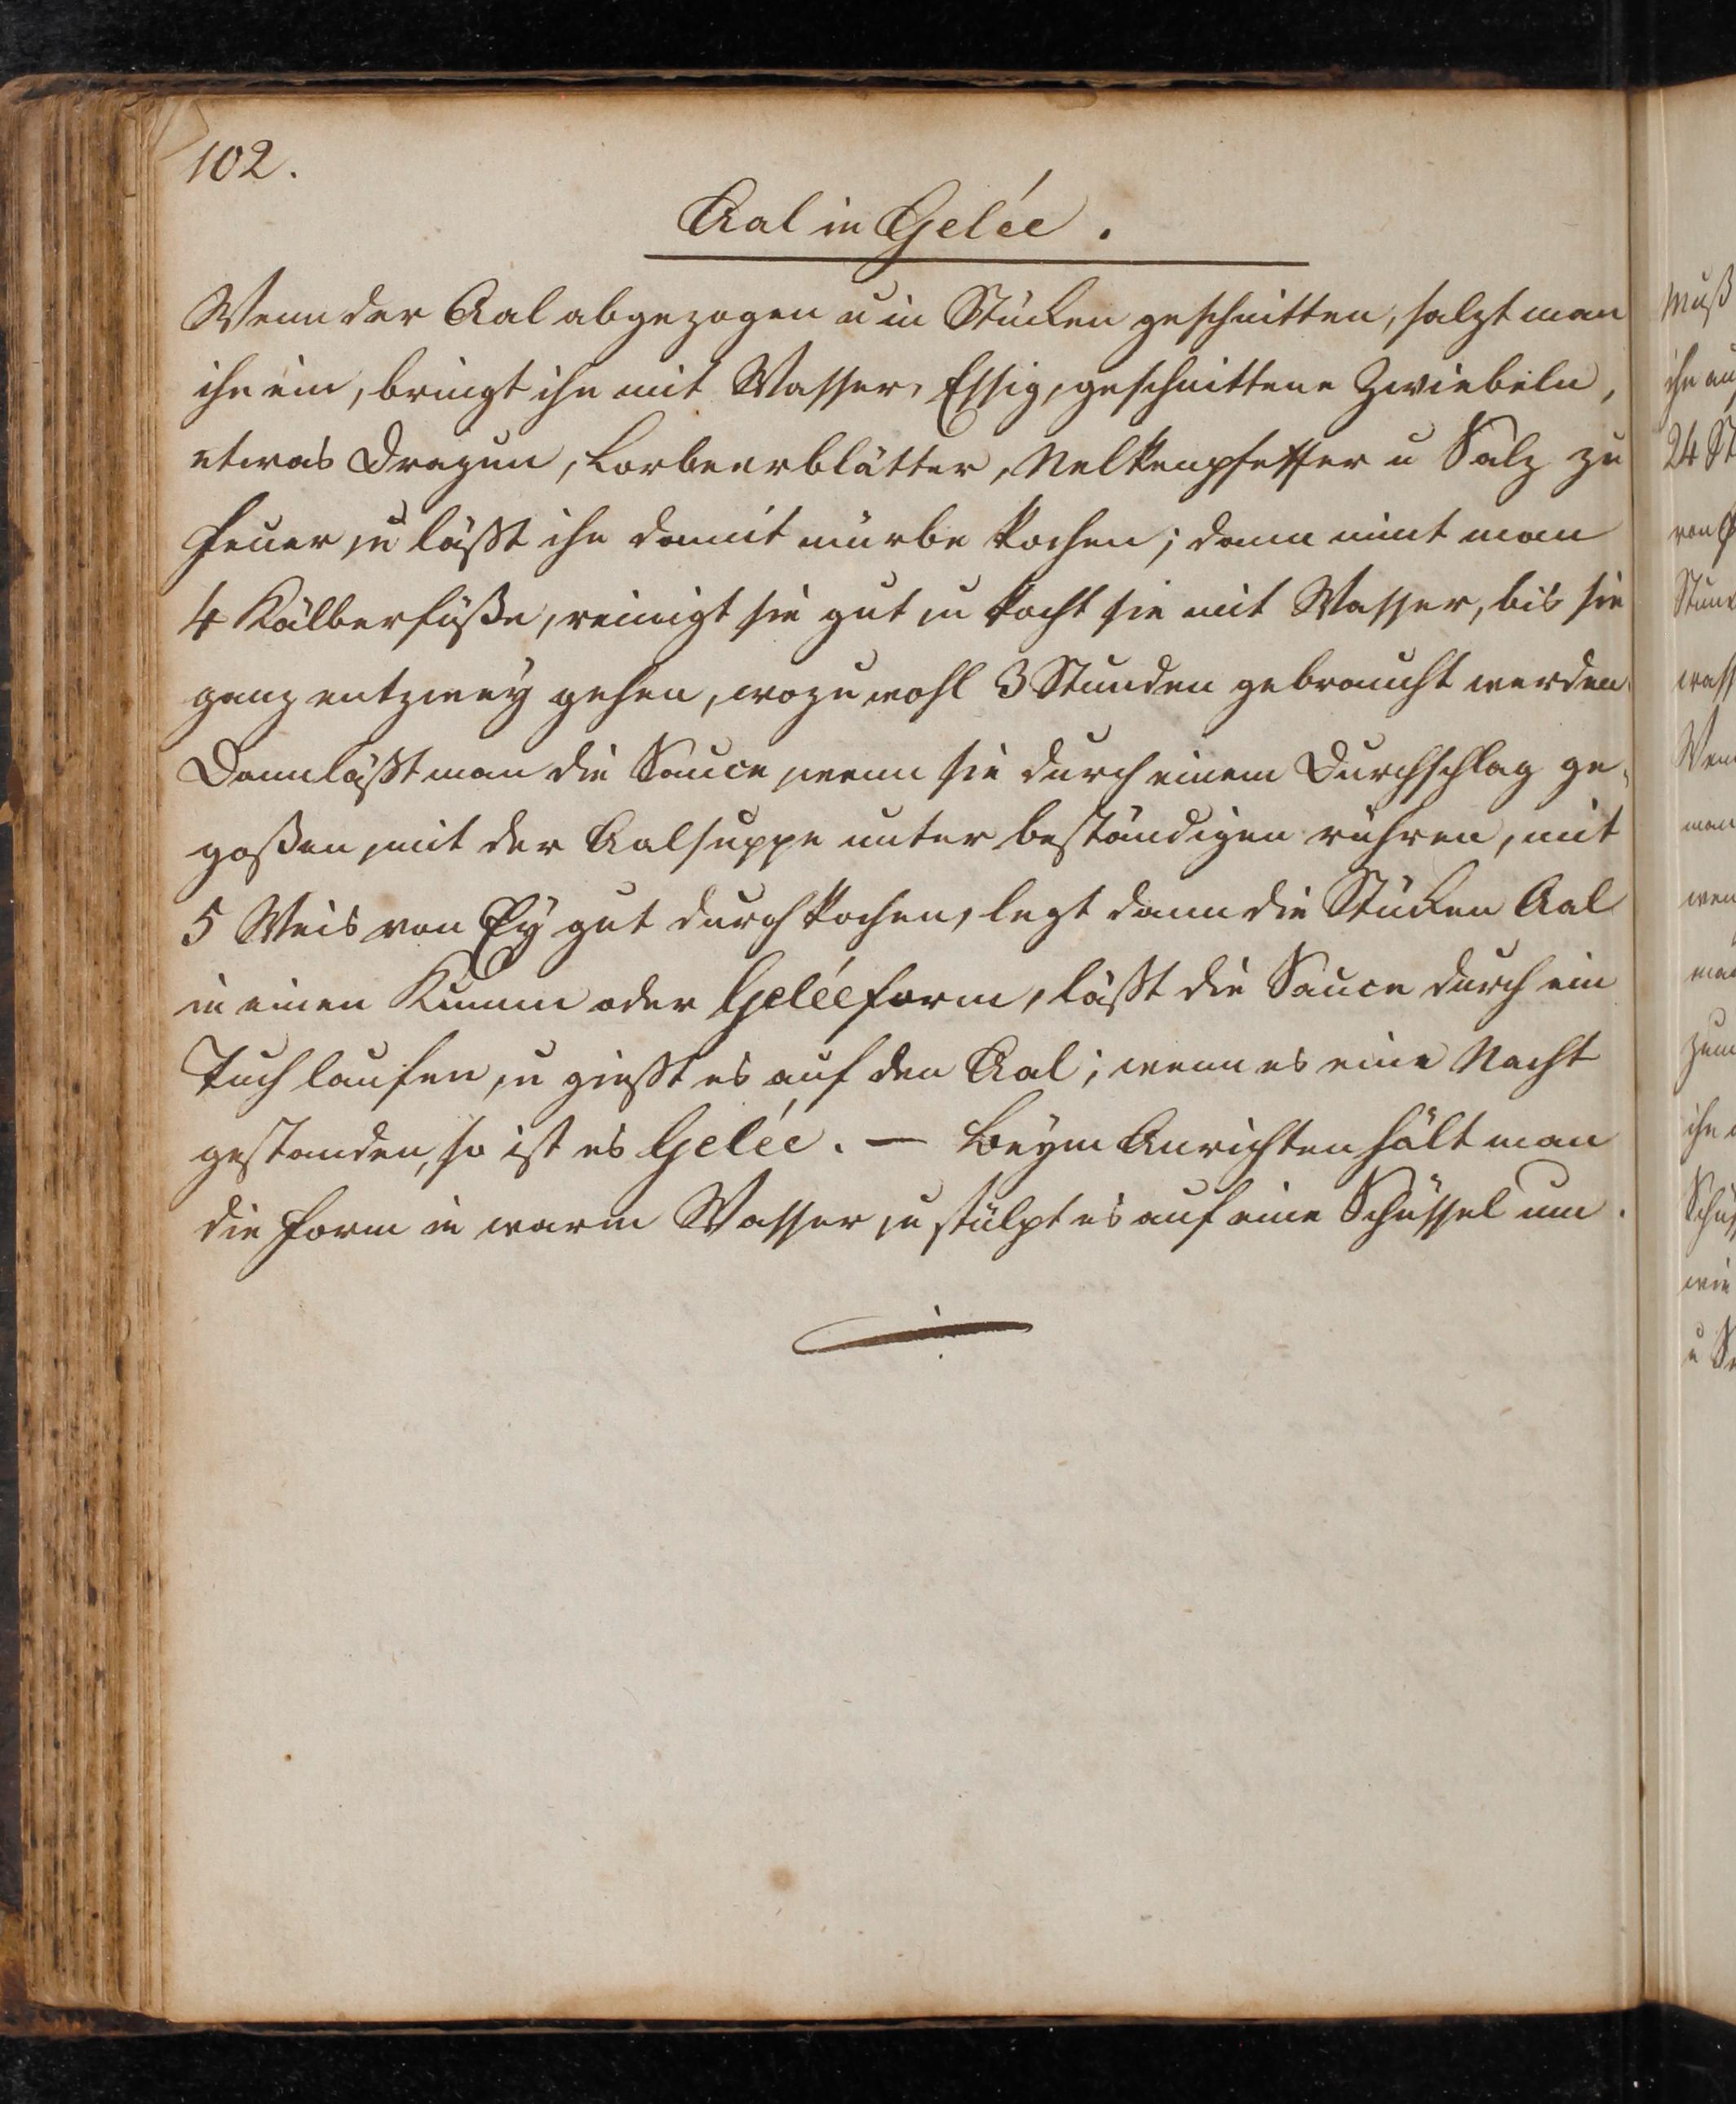 102.
Aal in Gelée.
Wenn der Aal abgezogen u in Stücken geschnitten, salzt man
ihn ein, bringt ihn mit Wasser, Essig, geschnittene Zwiebeln,
etwas Dragun, Lorbeerblätter, Nelkenpfeffer u Salz zu
Feuer, u läßt ihn damit mürbe kochen; dann nimt man
4 Kälberfüße, reinigt sie gut u kocht sie mit Wasser, bis sie
ganz entzwey gehen, wozu wohl 3 Stunden gebraucht werden.
Dann läßt man die Sauce, wenn sie durch einem Durchschlag ge-
goßen, mit der Aalsuppe unter beständigen rühren, mit
5 Weis von Ey gut durchkochen, legt dann die Stücken Aal
in einen Kumm oder Geléeform, läßt die Sauce durch ein
Tuch laufen, u gießt es auf den Aal; wenn es eine Nacht
gestanden, so ist es Gelée. — Beym Anrichten hält man
die Form in warm Wasser, u stülpt es auf eine Schüssel um.
muß
24 St
von
man
zum
Schüss
wie